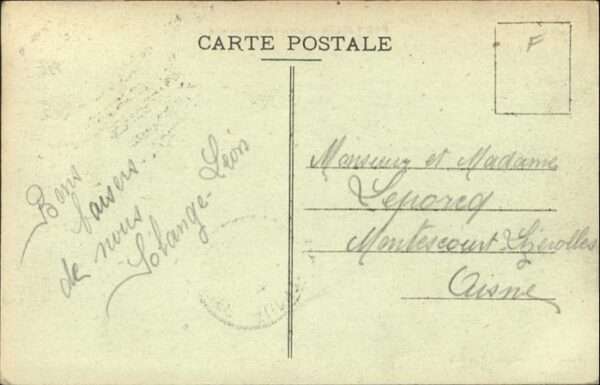 CARTE POSTALE
F
Bons
baisers...
de nous
Solange - Léon
Monsieur et Madame
Leporcq
Montescourt-Lizerolles
Aisne